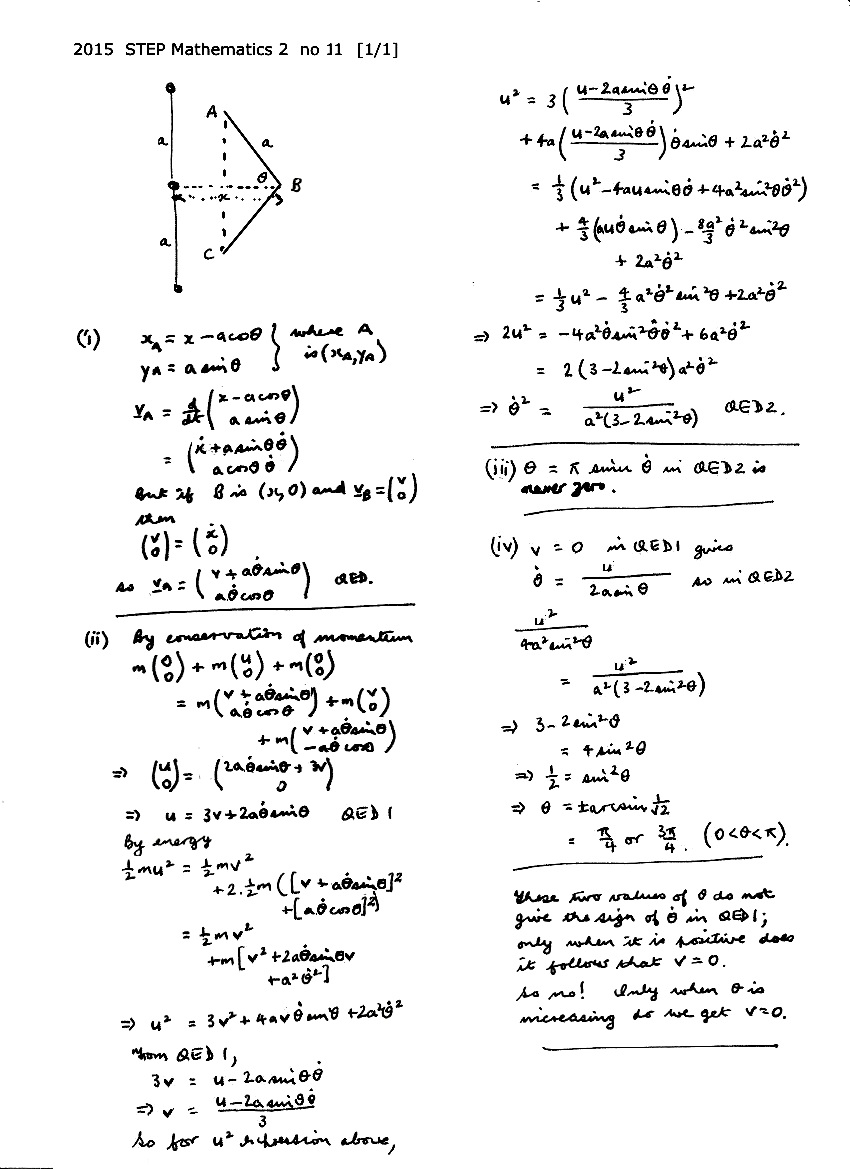 2015 STEP Mathematics 2 no 11 [1/1]
A
a
a
θ
B
x
a
C
(i) x_A = x − a cosθ } where A
y_A = a sinθ } is (x_A, y_A)
v_A = d/dt (x − a cosθ
a sinθ)
= (ẋ + a sinθ θ̇
a cosθ θ̇)
But if B is (x, 0) and v_B = (v
0)
then
(v
0) = (ẋ
0)
so v_A = (v + aθ̇ sinθ
aθ̇ cosθ) QED.
(ii) By conservation of momentum
m(0
0) + m(u
0) + m(0
0)
= m(v + aθ̇ sinθ
aθ̇ cosθ) + m(v
0)
+ m(v + aθ̇ sinθ
−aθ̇ cosθ)
⇒ (u
0) = (2aθ̇ sinθ + 3v
0)
⇒ u = 3v + 2aθ̇ sinθ QED 1
By energy
½mu² = ½mv²
+ 2.½m([v + aθ̇ sinθ]²
+ [aθ̇ cosθ]²)
= ½mv²
+ m[v² + 2aθ̇ sinθ v
+ a²θ̇²]
⇒ u² = 3v² + 4avθ̇ sinθ + 2a²θ̇²
From QED 1,
3v = u − 2a sinθ θ̇
⇒ v = (u − 2a sinθ θ̇)/3
So for u² expression above,
u² = 3((u − 2a sinθ θ̇)/3)²
+ 4a((u − 2a sinθ θ̇)/3)θ̇ sinθ + 2a²θ̇²
= ⅓(u² − 4au sinθ θ̇ + 4a² sin²θ θ̇²)
+ 4/3(auθ̇ sinθ) − 8a²/3 θ̇² sin²θ
+ 2a²θ̇²
= ⅓u² − 4/3 a²θ̇² sin²θ + 2a²θ̇²
⇒ 2u² = −4a²θ̇ sin²θ θ̇² + 6a²θ̇²
= 2(3 − 2sin²θ)a²θ̇²
⇒ θ̇² = u²/(a²(3 − 2sin²θ)) QED 2.
(iii) θ = π since θ̇ in QED 2 is
never zero.
(iv) v = 0 in QED 1 gives
θ̇ = u/(2a sinθ) so in QED 2
u²/(4a² sin²θ)
= u²/(a²(3 − 2sin²θ))
⇒ 3 − 2sin²θ
= 4 sin²θ
⇒ ½ = sin²θ
⇒ θ = ±arcsin 1/√2
= π/4 or 3π/4. (0<θ<π).
These two values of θ do not
give the sign of θ̇ in QED 1;
only when it is positive does
it follow that v = 0.
So no! Only when θ is
increasing do we get v = 0.